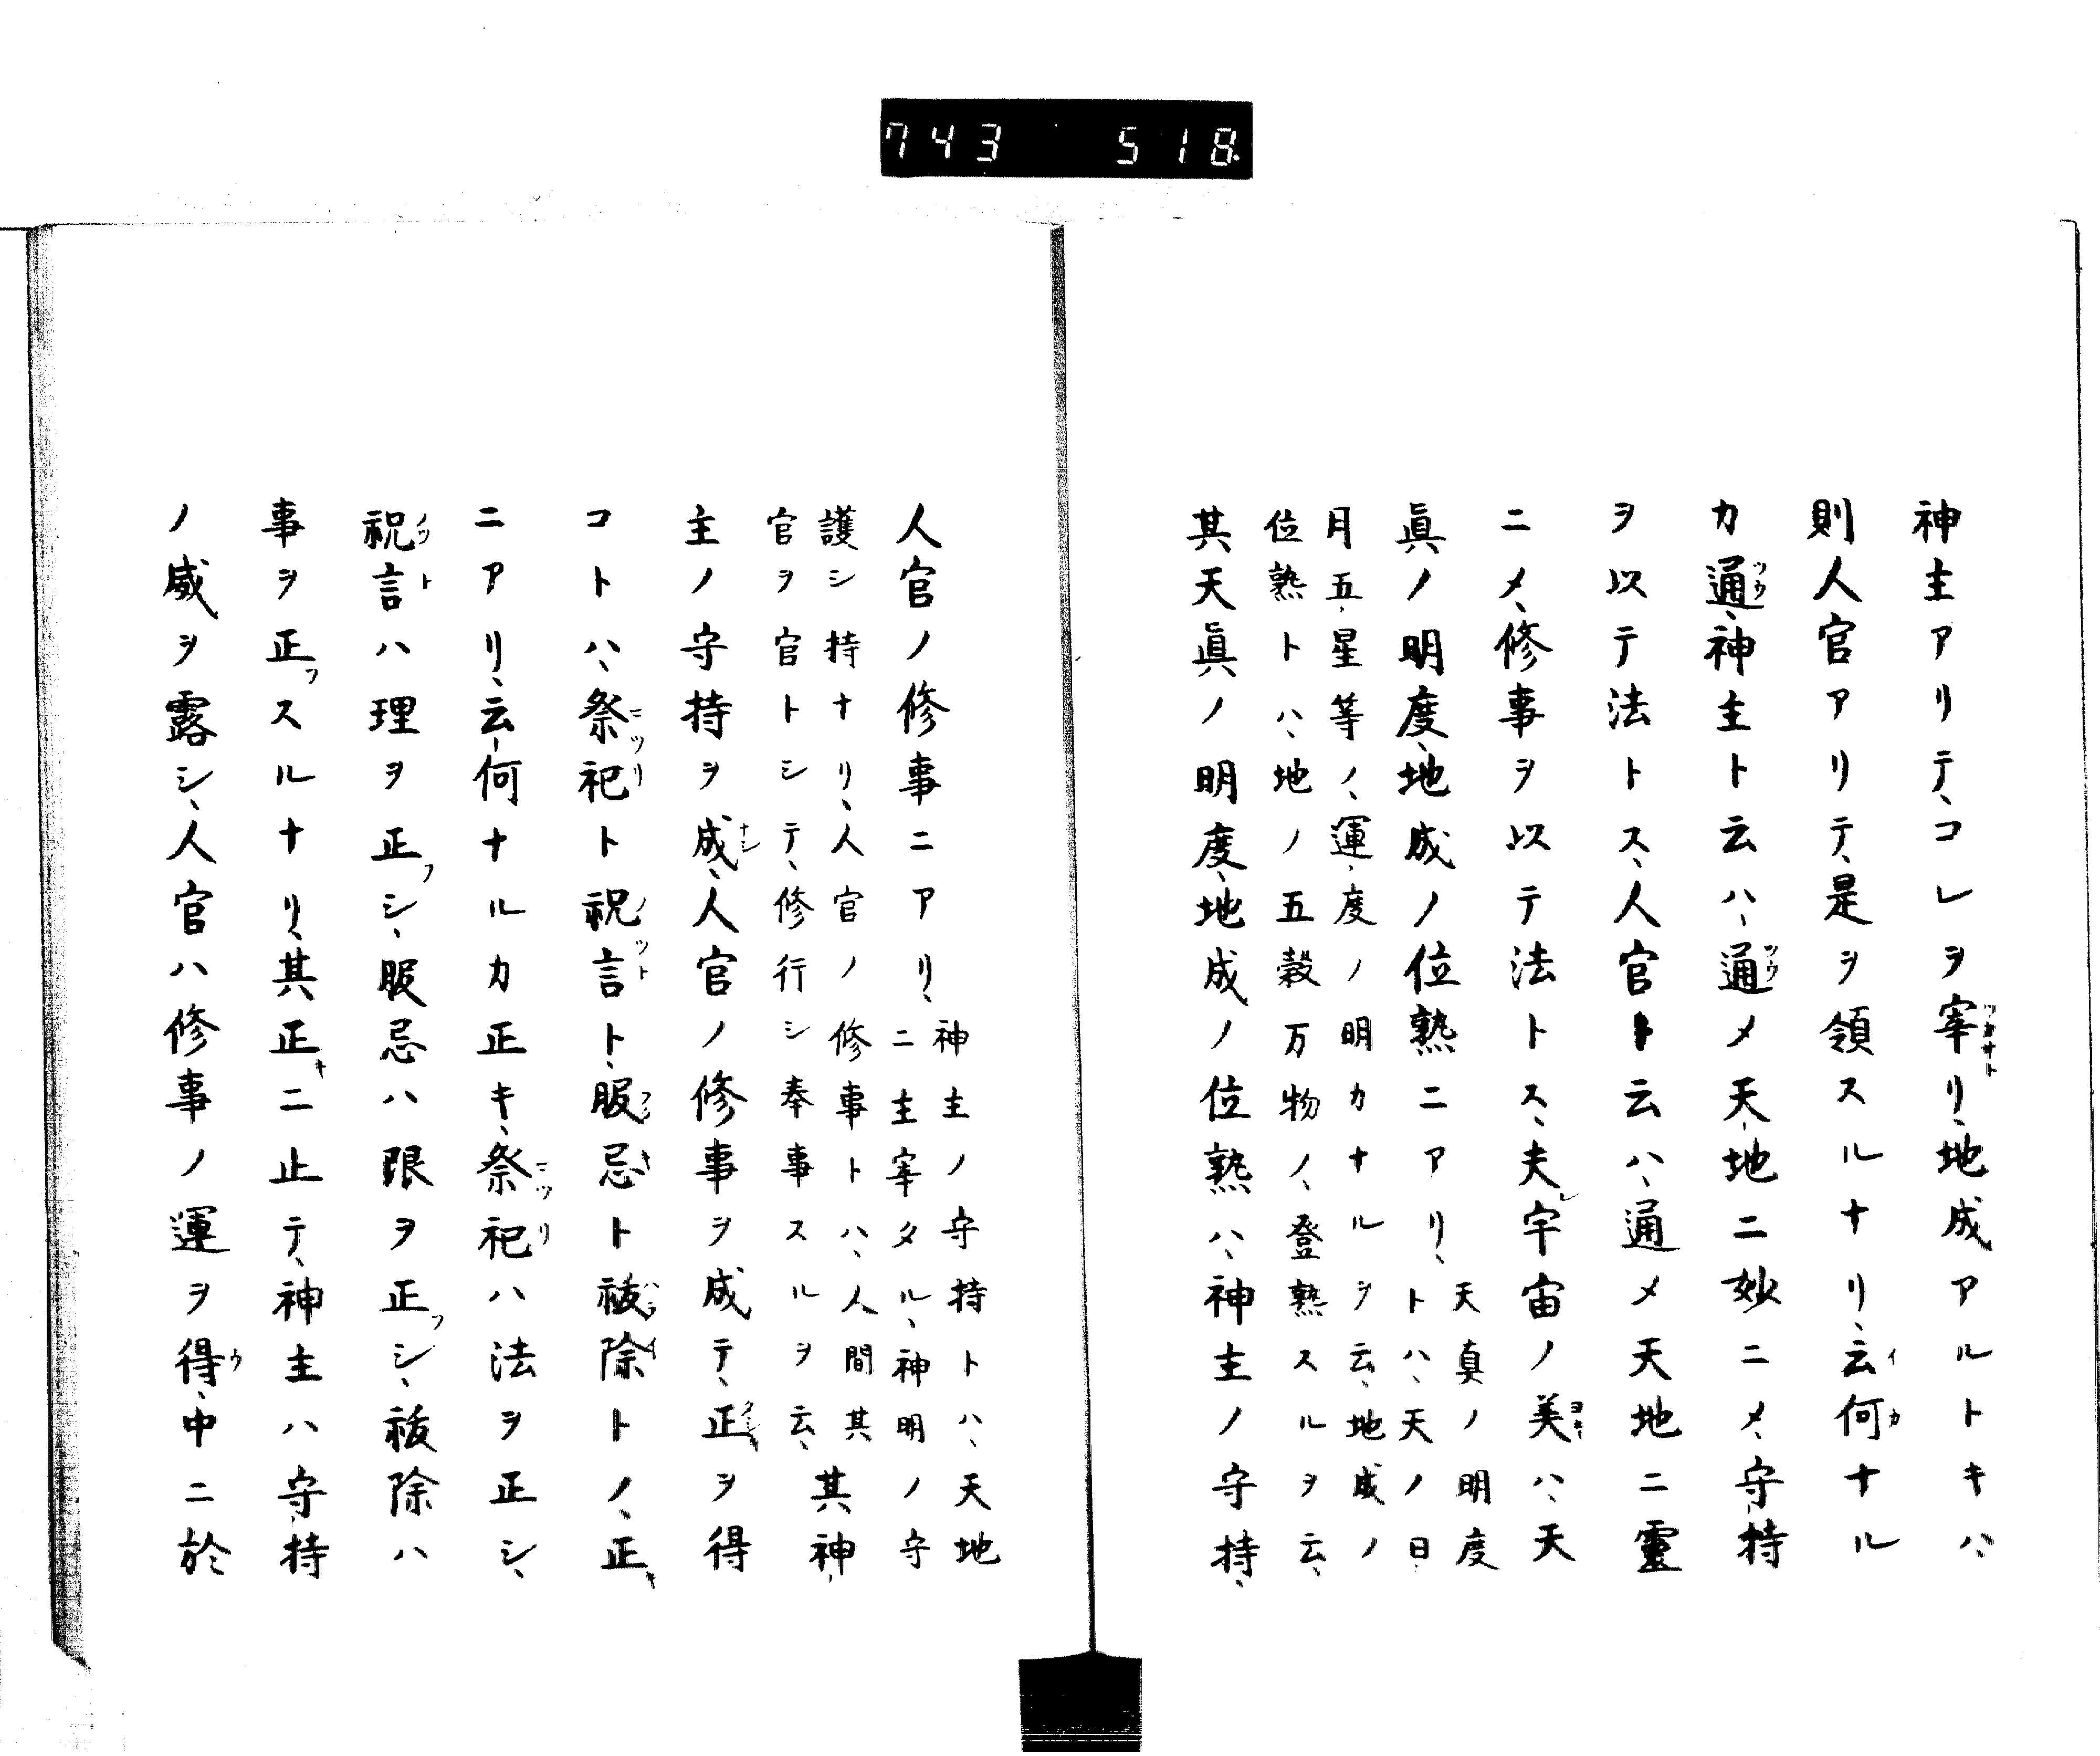 743 518
神主アリテ、コレヲ宰リ、地成アルトキハ、
則人官アリテ、是ヲ領スルナリ、云何ナル
カ通、神主ト云ハ、通メ天地ニ妙ニメ、守持
ヲ以テ法トス、人官ト云ハ、通メ天地ニ靈
ニメ、修事ヲ以テ法トス、夫宇宙ノ美ハ、天
眞ノ明度、地成ノ位熟ニアリ、天真ノ明度
トハ、天ノ日
月五星等ノ、運度ノ明カナルヲ云、地成ノ
位熟トハ、地ノ五穀万物ノ、登熟スルヲ云、
其天眞ノ明度、地成ノ位熟ハ、神主ノ守持、
人官ノ修事ニアリ、神主ノ守持トハ、天地
ニ主宰タル、神明ノ守
護シ持ナリ、人官ノ修事トハ、人間其
官ヲ官トシテ、修行シ奉事スルヲ云、其神
主ノ守持ヲ成、人官ノ修事ヲ成テ、正ヲ得
コトハ、祭祀ト祝言ト、服忌ト祓除トノ、正
ニアリ、云何ナルカ正キ、祭祀ハ法ヲ正シ、
祝言ハ理ヲ正シ、服忌ハ限ヲ正シ、祓除ハ
事ヲ正スルナリ、其正ニ止テ、神主ハ守持
ノ威ヲ露シ、人官ハ修事ノ運ヲ得、中ニ於